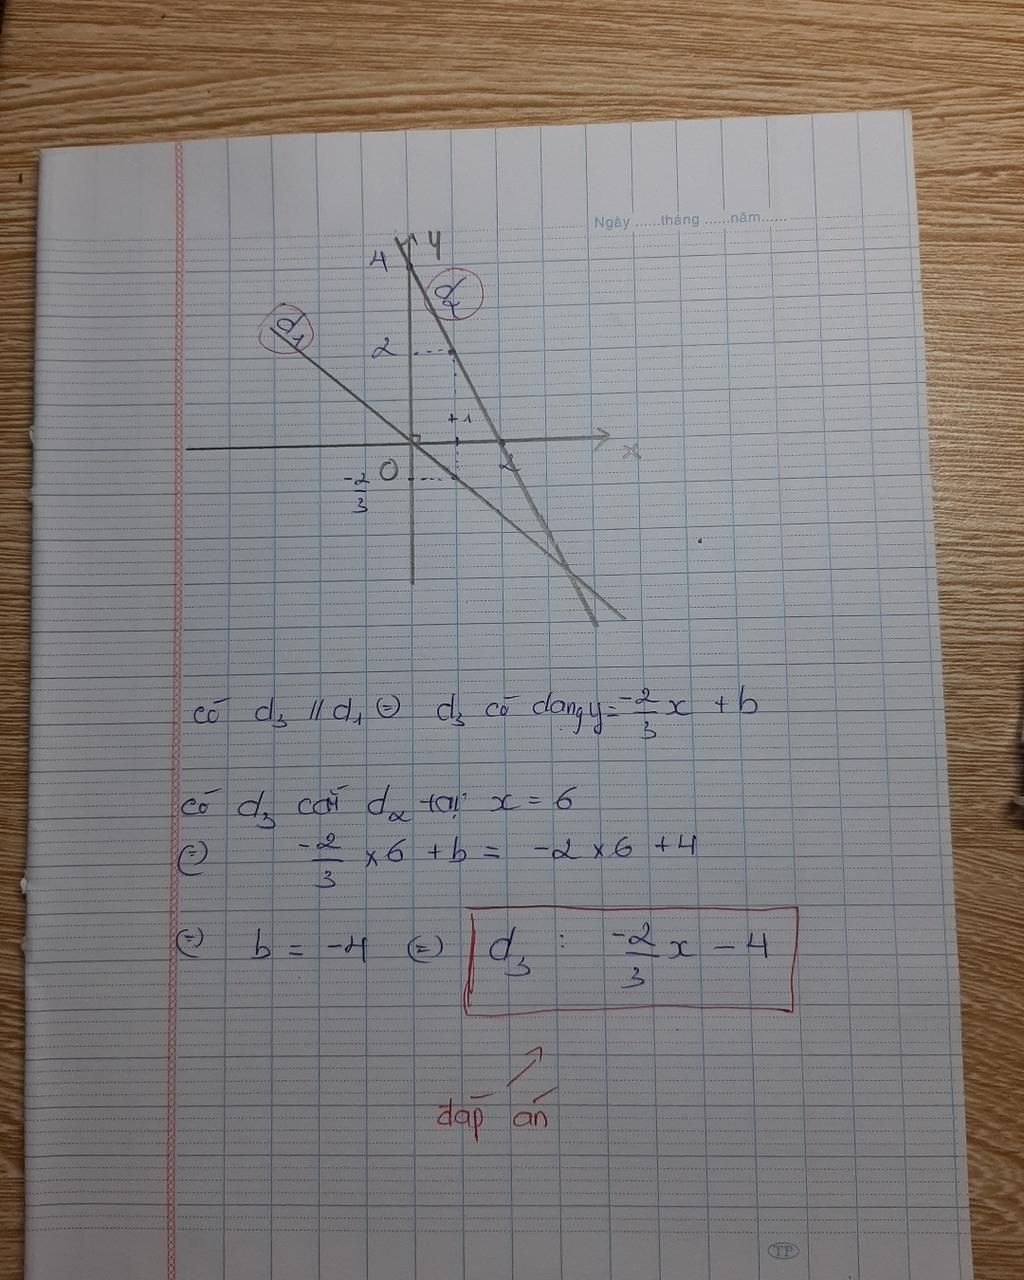 Ngày ......tháng ......năm......
y
4
d₂
d₁
2
+1
x
O
2
-2/3
có d₃ // d₁ (=) d₃ có dạng y = -2/3 x + b
có d₃ cắt d₂ tại x = 6
(=) -2/3 × 6 + b = -2 × 6 + 4
(=) b = -4 (=) d₃ : -2/3 x - 4
đáp án
TP